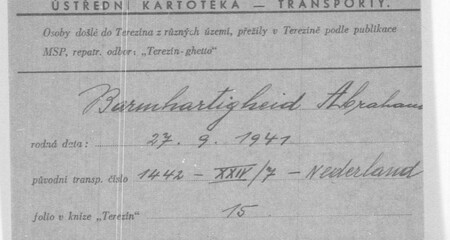 ÚSTŘEDNÍ KARTOTÉKA — TRANSPORTY.
Osoby došlé do Terezína z různých území, přežily v Terezíně podle publikace
MSP, repatr. odbor: „Terezín-ghetto"
Barmhartigheid Abraham
rodná data: 27. 9. 1941
původní transp. číslo 1442 – XXIV/7 – Nederland
folio v knize „Terezín" 15.